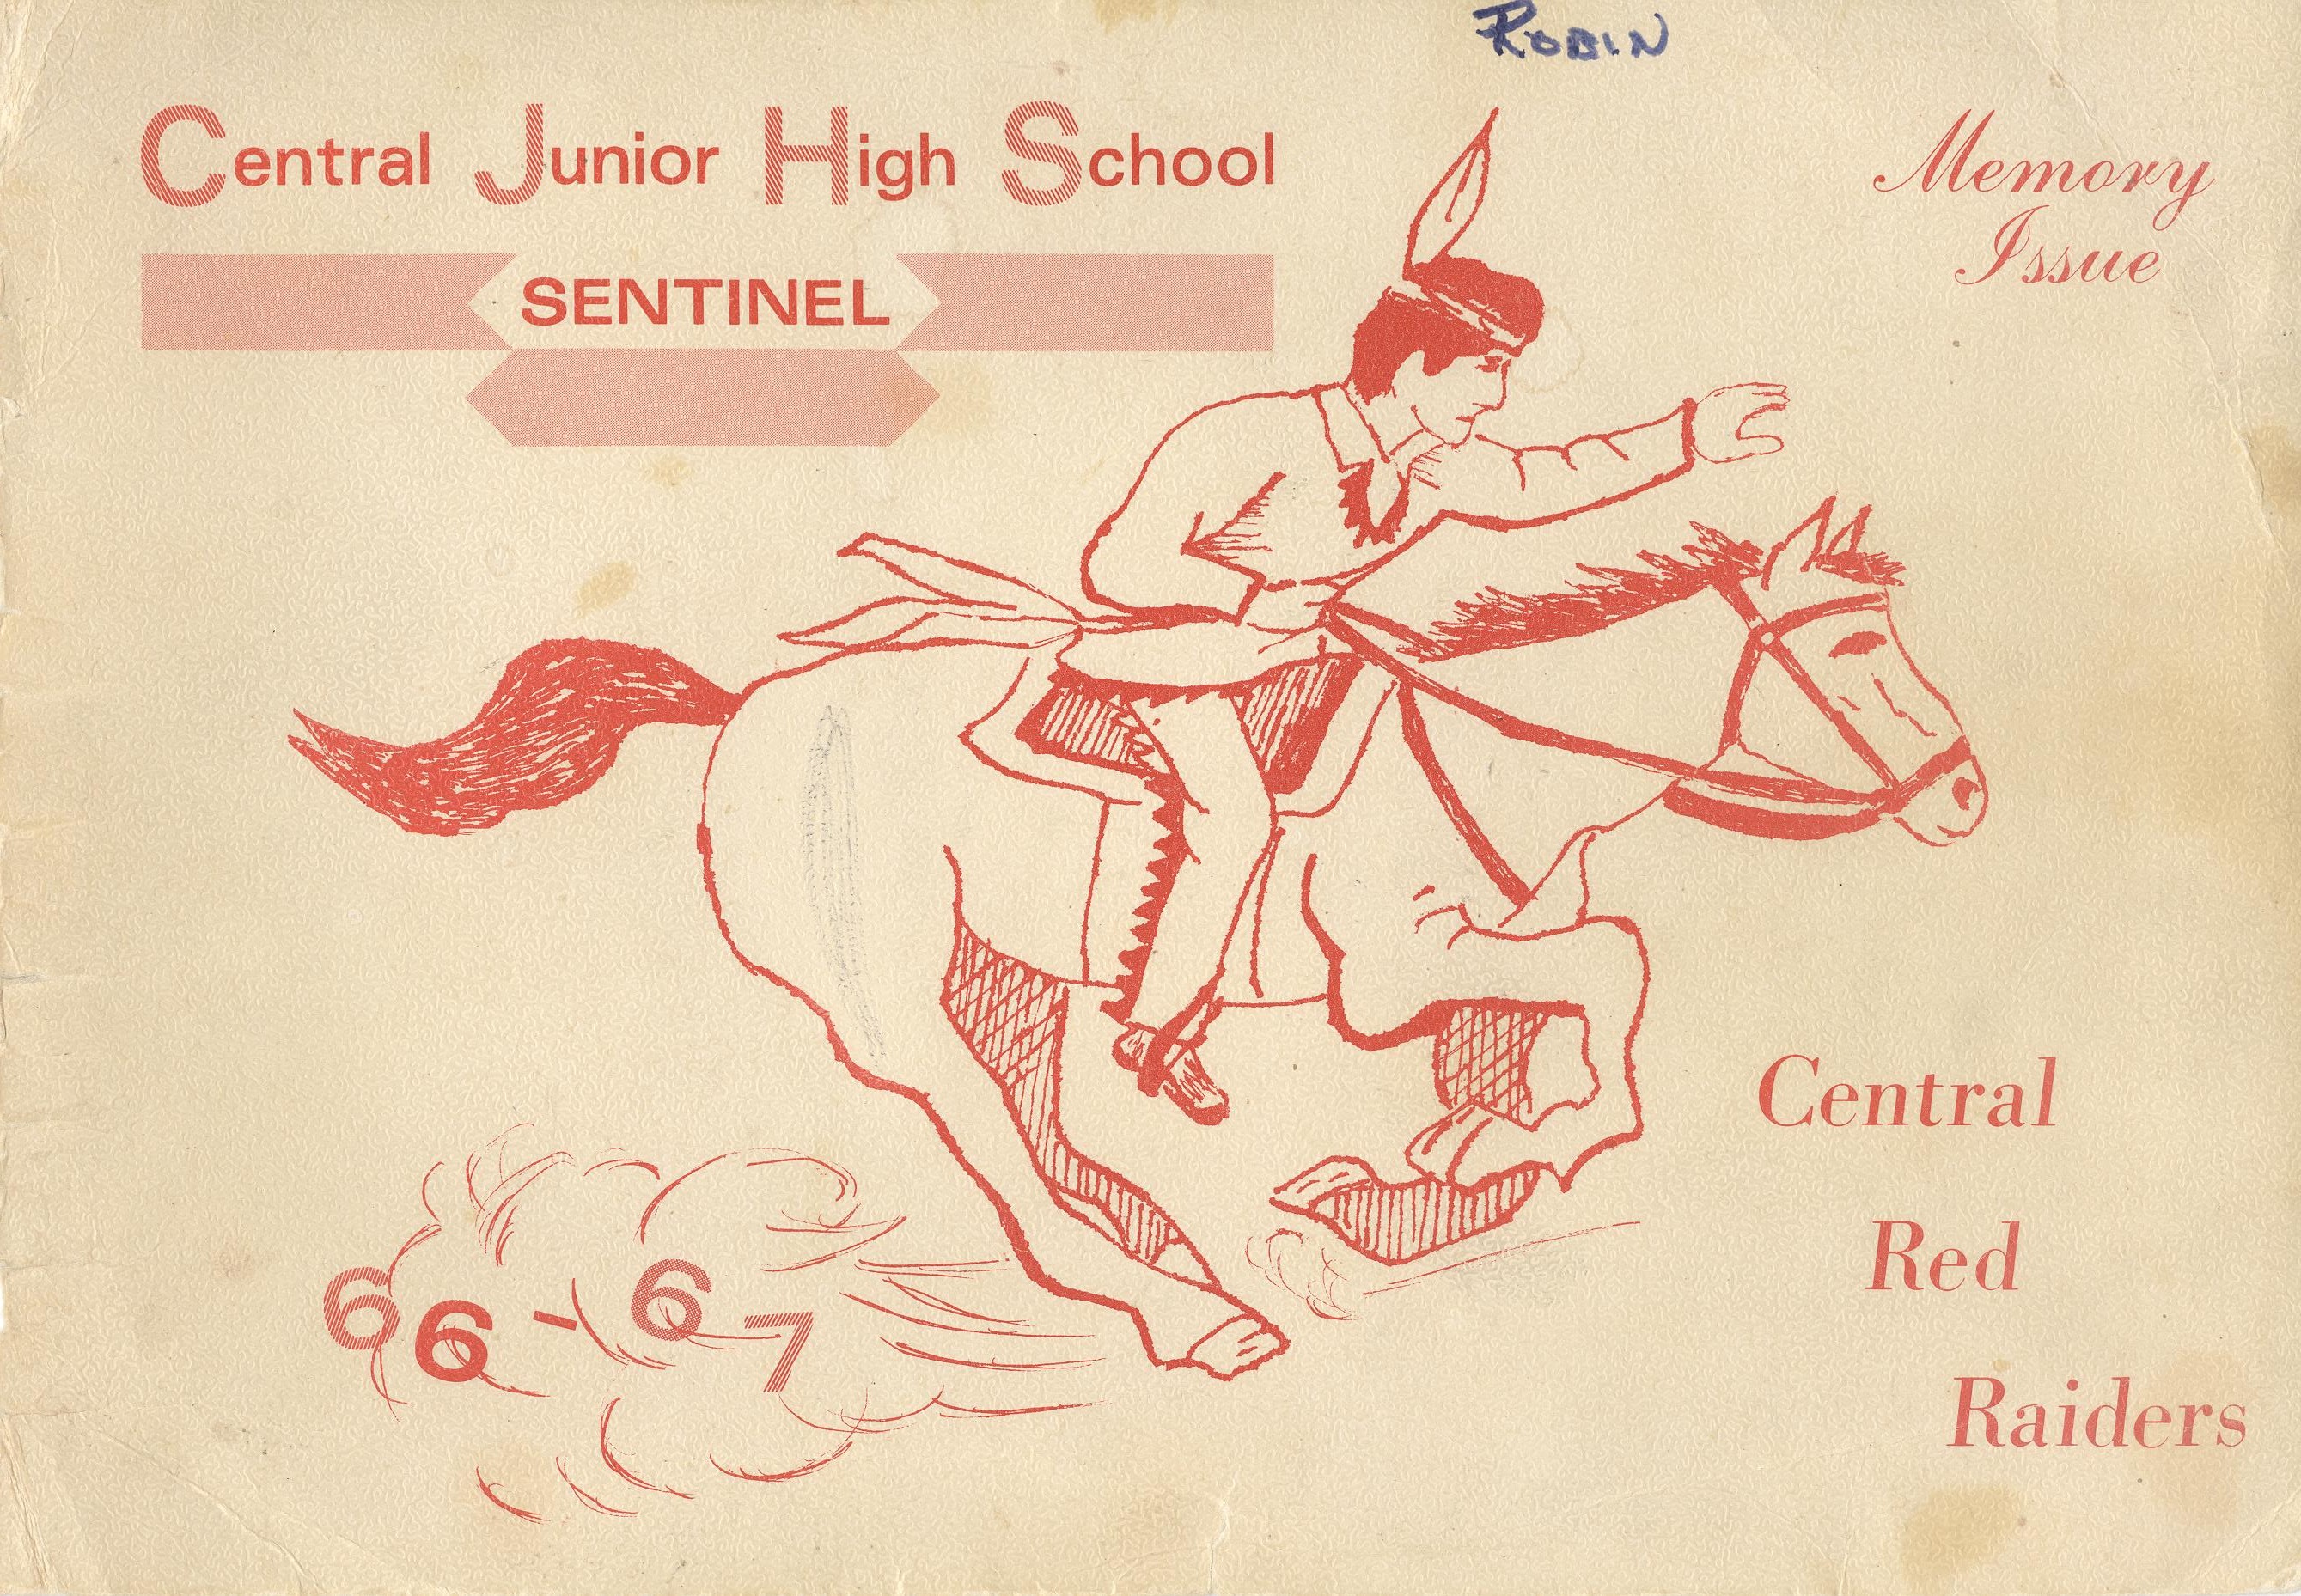 ROBIN
Central Junior High School
SENTINEL
Memory
Issue
Central
Red
Raiders
66-67